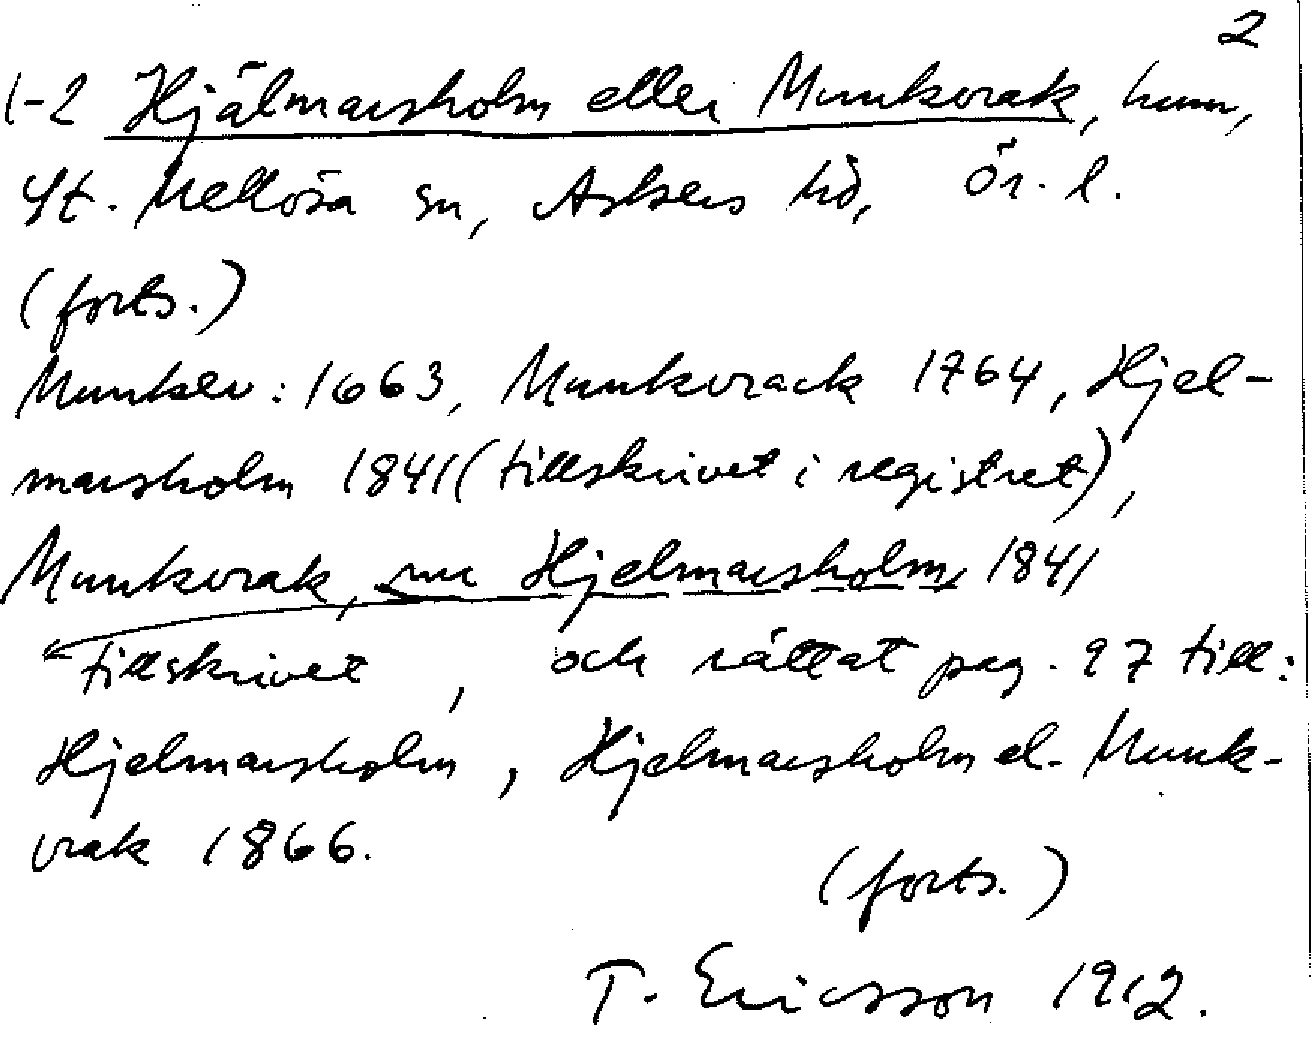 2
1-2 Hjälmarsholm eller Munkvrak, hmn,
St. Mellösa sn, Askers hd, Ör. l.
(forts.)
Munkev: 1663, Munkvrack 1764, Hjel-
marsholm 1841 (tillskrivet i registret),
Munkvrak, nu Hjelmarsholm 1841
tillskrivet, och rättat pag. 97 till:
Hjelmarsholm, Hjelmarsholm el. Munk-
vrak 1866.
(forts.)
T. Ericsson 1912.